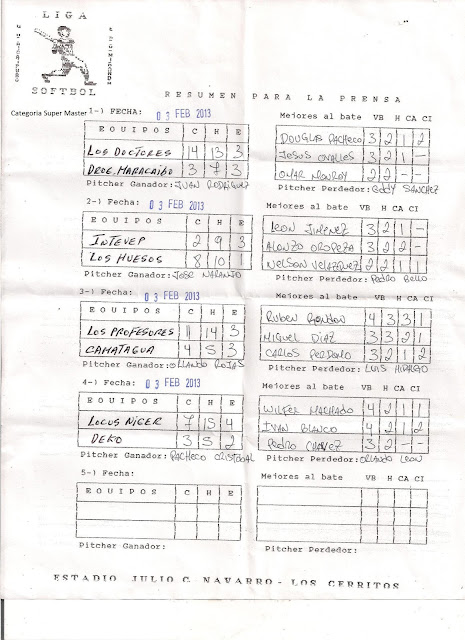 LIGA
SOFTBOL
RESUMEN PARA LA PRENSA
Categoria Super Master 1-) FECHA: 03 FEB 2013
Mejores al bate VB H CA CI
EQUIPOS C H E
DOUGLAS PACHECO 3 2 1 2
LOS DOCTORES 14 13 3
JESUS OVALLES 3 2 1 -
DROG. MARACAIBO 3 7 3
OMAR MONROY 2 2 - -
Pitcher Ganador: JUAN RODRIGUEZ
Pitcher Perdedor: GEDDY SANCHEZ
2-) Fecha: 03 FEB 2013
Mejores al bate VB H CA CI
EQUIPOS C H E
LEON JIMENEZ 3 2 1 -
INTEVEP 2 9 3
ALONZO OROPEZA 3 2 2 -
LOS HUESOS 8 10 1
NELSON VELAZQUEZ 2 2 1 1
Pitcher Ganador: JOSE NARANJO
Pitcher Perdedor: PEDRO BELLO
3-) Fecha: 03 FEB 2013
Mejores al bate VB H CA CI
EQUIPOS C H E
RUBEN RONDON 4 3 3 1
LOS PROFESORES 11 14 3
MIGUEL DIAZ 3 3 1 -
CAMATAGUA 4 5 3
CARLOS PERDOMO 3 2 1 2
Pitcher Ganador: ORLANDO ROJAS
Pitcher Perdedor: LUIS HIDALGO
4-) Fecha: 03 FEB 2013
Mejores al bate VB H CA CI
EQUIPOS C H E
WILFER MACHADO 4 2 1 1
LOCUS NIGER 7 15 4
IVAN BLANCO 4 2 1 2
DEKO 3 5 2
PEDRO CHAVEZ 3 2 - -
Pitcher Ganador: PACHECO CRISTOBAL
Pitcher Perdedor: ORLANDO LEON
5-) Fecha:
Mejores al bate VB H CA CI
EQUIPOS C H E
Pitcher Ganador:
Pitcher Perdedor:
ESTADIO JULIO C. NAVARRO - LOS CERRITOS